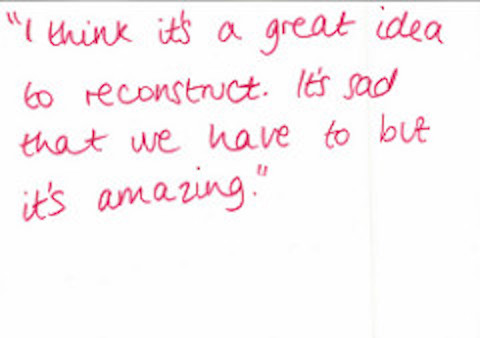 "I think it's a great idea
to reconstruct. It's sad
that we have to but
it's amazing."